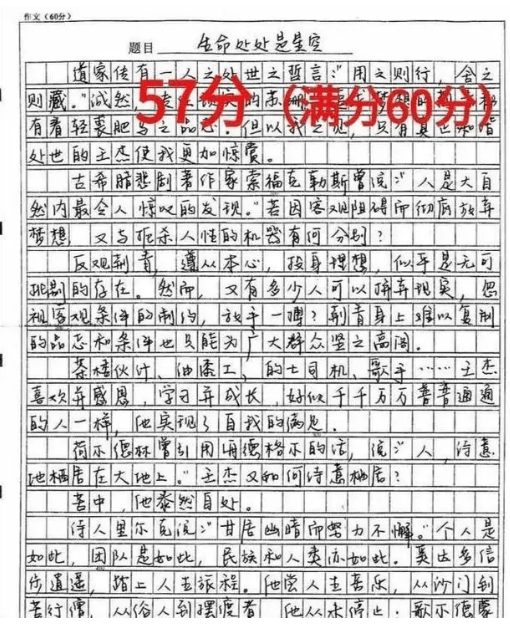 作文（60分）
题目 生命处处是星空
道家传有一人之处世之哲言：“用之则行，舍之
则藏。”诚然，
57分（满分60分）
有着轻裘肥马之品志。但以我之见，只有真正和谐
处世的王杰使我更加惊赏。
古希腊悲剧著作家索福克勒斯曾说：“人是大自
然内最令人惊叹的发现。”若因客观阻碍而彻底放弃
梦想，又与扼杀人性的机器有何分别？
反观荆青，遵从本心，投身理想，似乎是无可
挑剔的存在。然而，又有多少人可以摒弃现实，忽
视客观条件的制约，放手一博？荆青身上难以复制
的品志和条件也只能为广大群众竖之高阁。
茶楼伙计、油漆工、的士司机、歌手……王杰
喜欢并感恩，学习并成长，好似千千万万普普通通
的人一样，他实现了自我的满足。
荷尔德林曾引用海德格尔的话，说：“人，诗意
地栖居在大地上。”王杰又如何诗意栖居？
苦中，他泰然自处。
诗人里尔克说：“甘居幽暗而努力不懈。”个人是
如此，团队是如此，民族和人类亦如此。奥达多信
步逍遥，踏上人生旅程。他尝人生苦乐，从沙门到
苦行僧，从俗人到摆渡者，他从未停止。歌尔德蒙